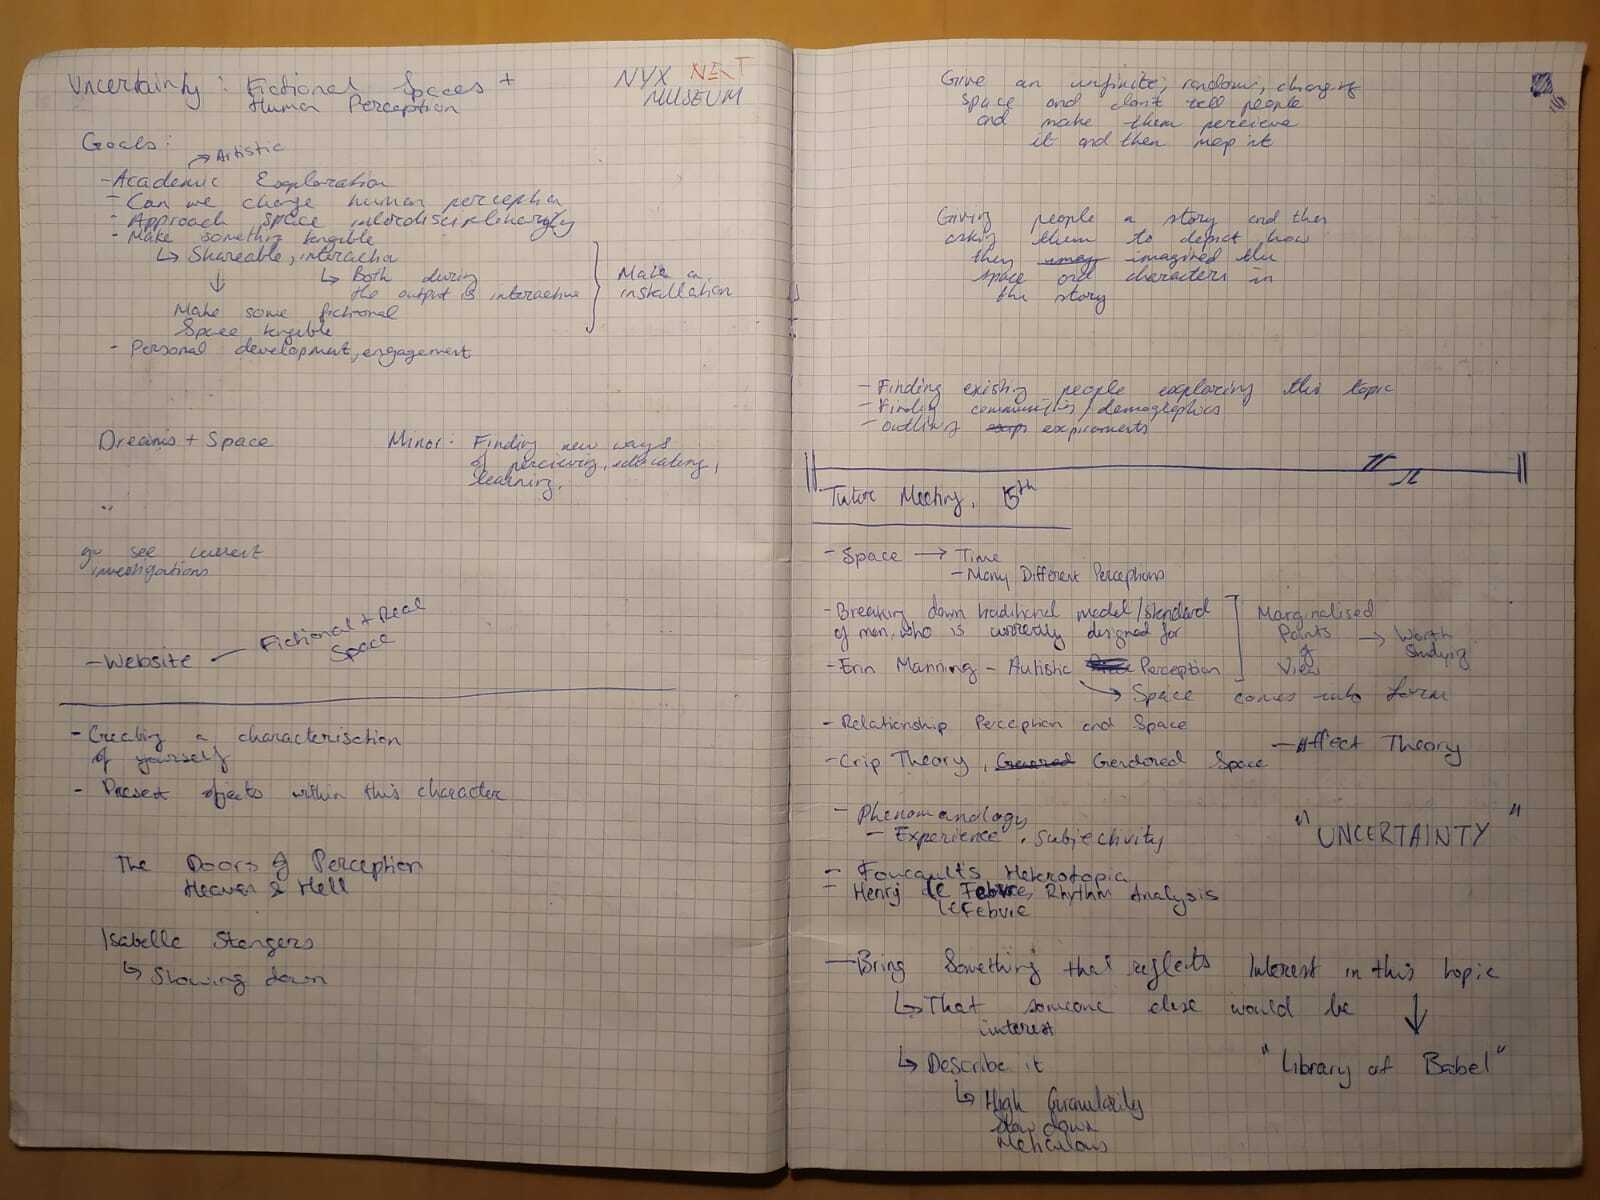 Uncertainty : Fictional Spaces +
Human Perception
NYX NEXT
MUSEUM
Goals:
→ Artistic
- Academic Exploration
- Can we change human perception
- Approach space interdisciplinarily
- Make something tangible
↳ Shareable, interaction
↳ Both during
the output is interactive
Make an
installation
↓
Make some fictional
Space tangible
- Personal development, engagement
Dreams + Space
Minor: Finding new ways
of percieving, educating,
learning.
go see current
investigations
- Website - Fictional + Real
Space
- Creating a characterisation
of yourself
- Present objects within this character
The Doors of Perception
Heaven & Hell
Isabelle Stengers
↳ Slowing down
Give an unfinite, random, changing
space and dont tell people
and make them percieve
it and then map it
Giving people a story and then
asking them to depict how
they imag imagined the
space and characters in
the story
- Finding existing people exploring this topic
- Finding communities/demographics
- outling exps expiraments
Tutor Meeting, 15th
- Space → Time
- Many Different Perceptions
- Breaking down traditional model/standard
of man, who is currently designed for
- Erin Manning - Autistic Perception
→ Space comes into form
Marginalised
Points
of
View
→ Worth
Studying
- Relationship Perception and Space
- Crip Theory, Gendored Space
- Affect Theory
- Phenomanology
- Experience, Subjectivity
" UNCERTAINTY "
- Foucault's Heterotopia
- Henry le Febvre, Rhythm Analysis
leFebvre
- Bring Something that reflects Interest in this topic
↳ That someone else would be
interest
↓
"Library of Babel"
↳ Describe it
↳ High Granularity
Slow down
Meticulous